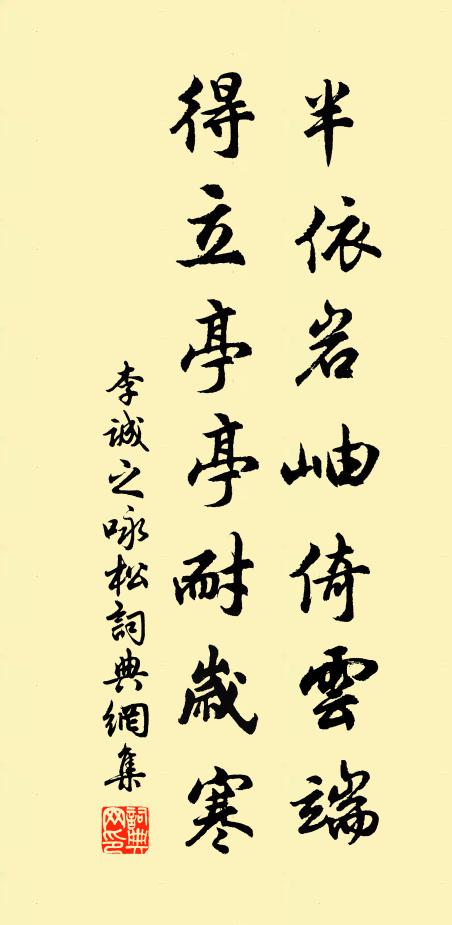 半依岩岫倚雲端
得立亭亭耐歲寒
李誠之咏松詞典網集
詞典網印